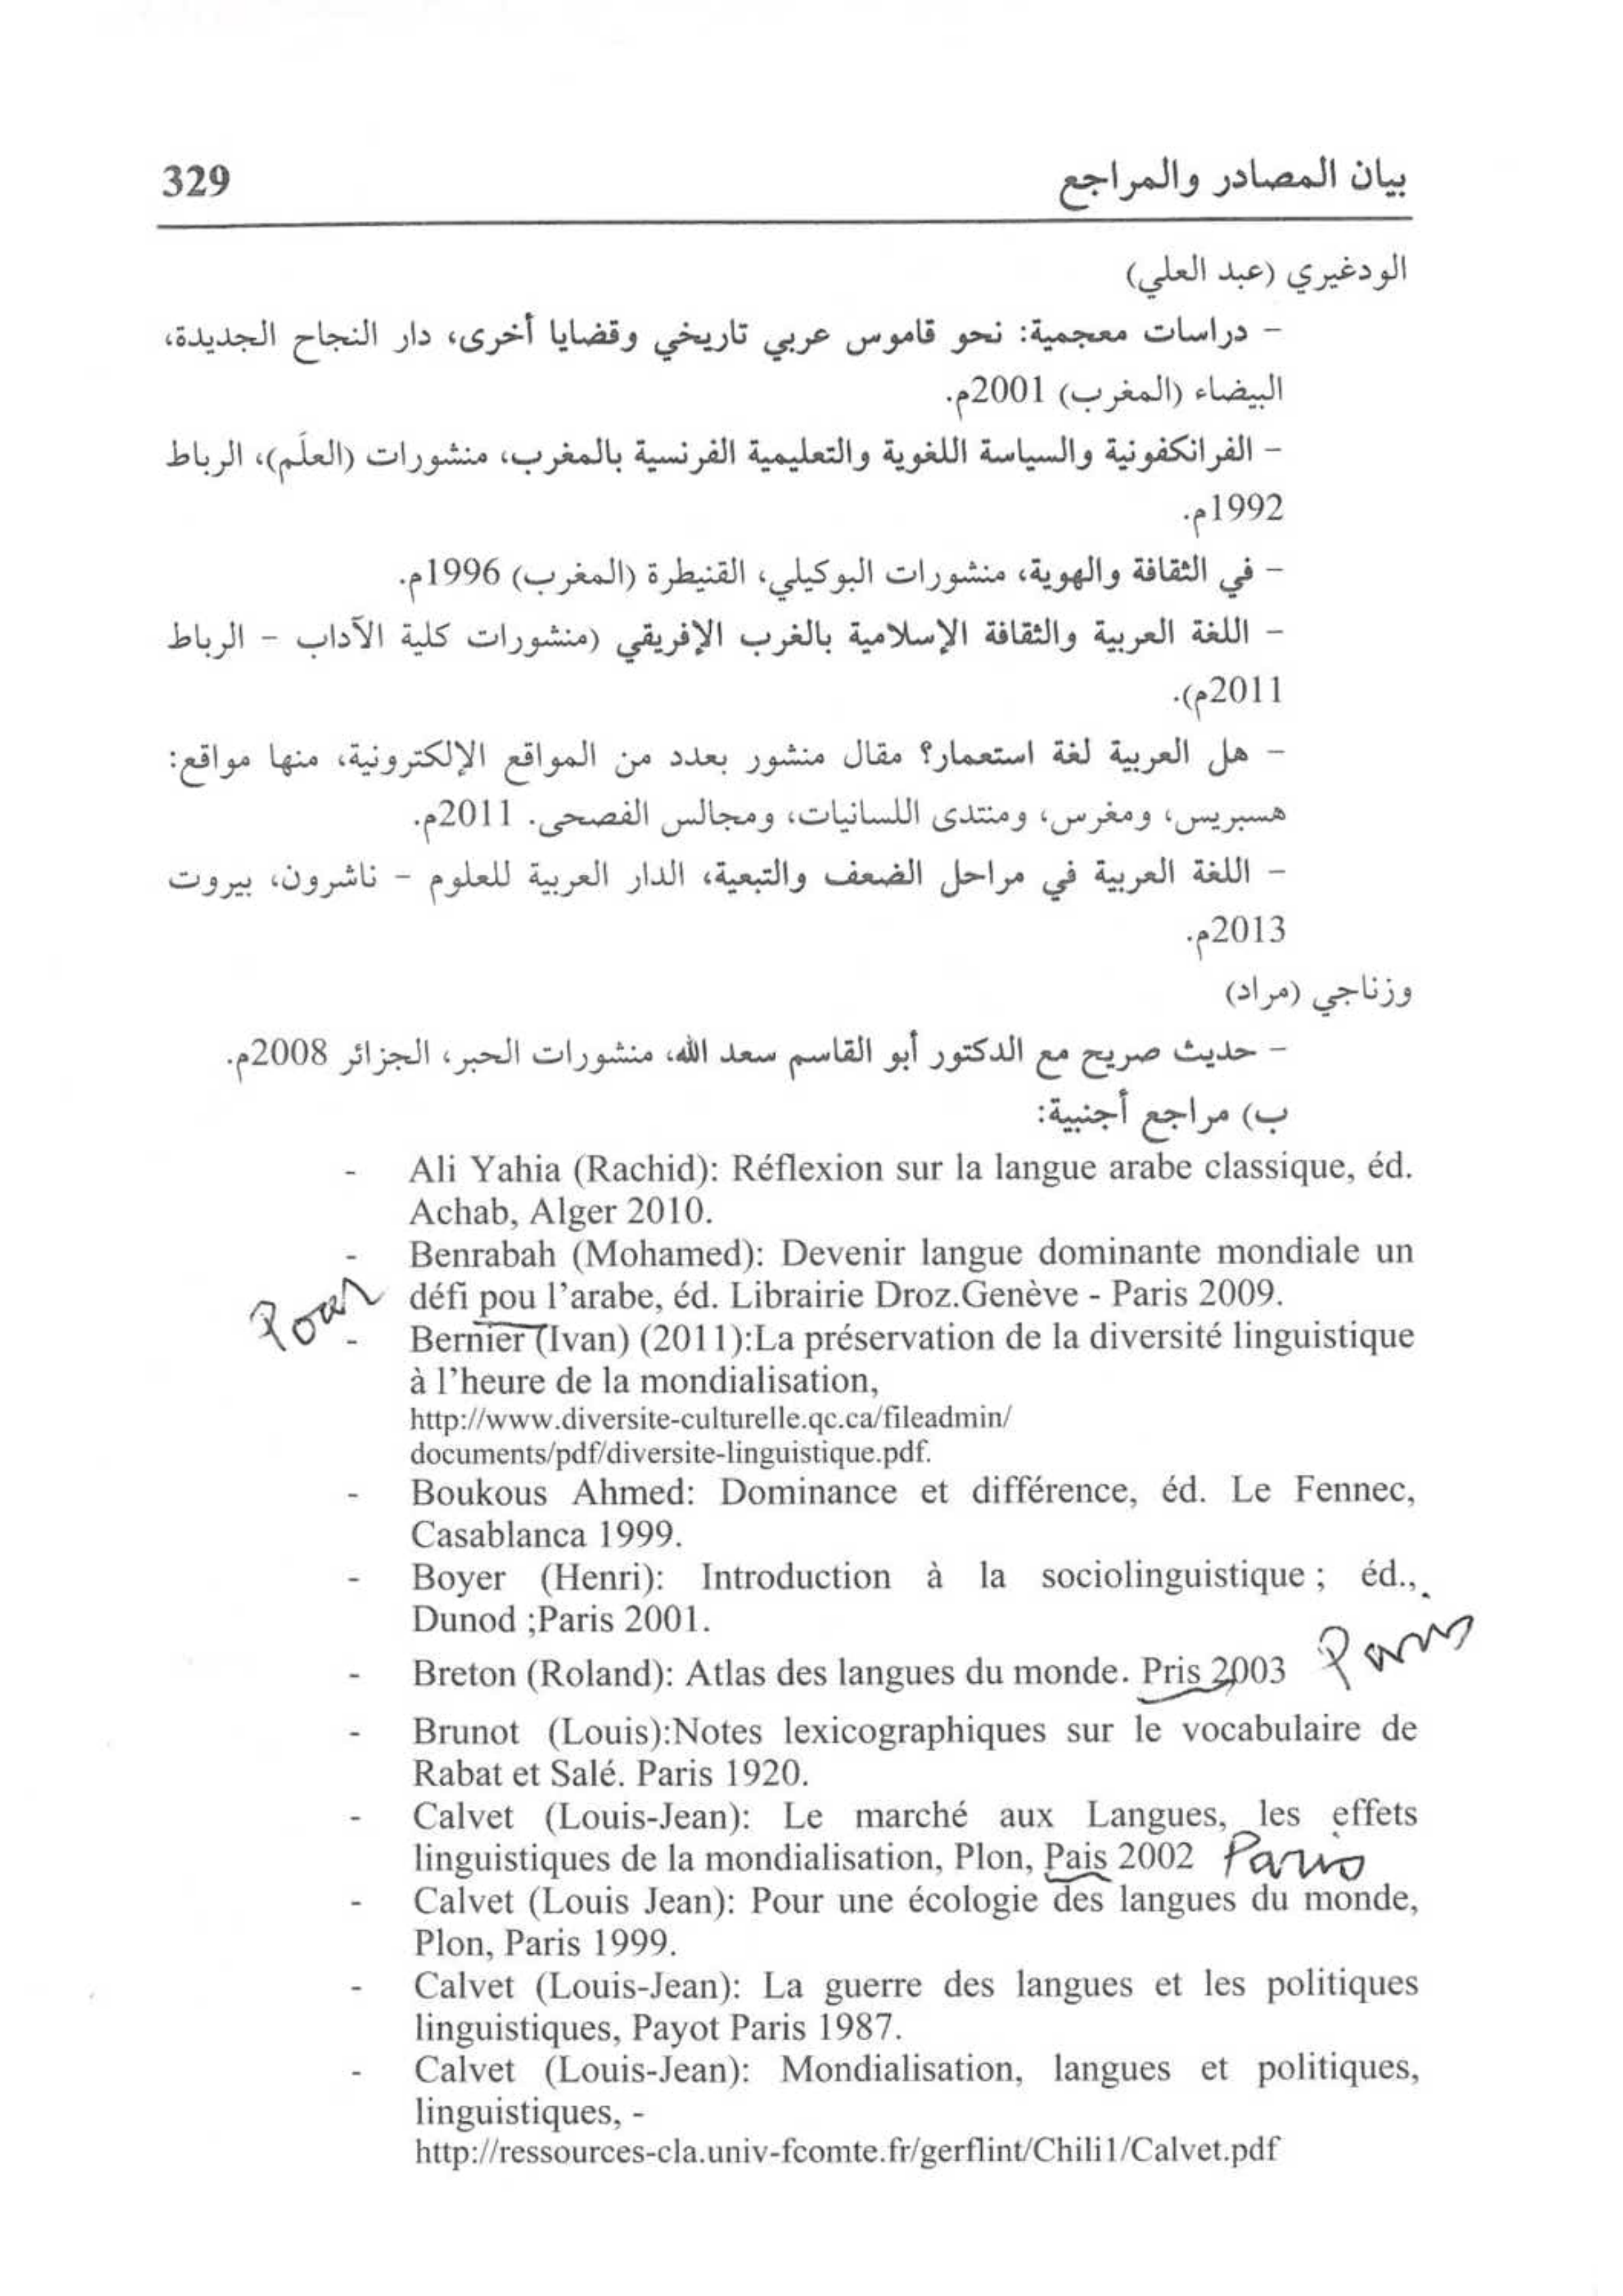 بيان المصادر والمراجع 329
الودغيري (عبد العلي)
- دراسات معجمية: نحو قاموس عربي تاريخي وقضايا أخرى، دار النجاح الجديدة،
البيضاء (المغرب) 2001م.
- الفرانكفونية والسياسة اللغوية والتعليمية الفرنسية بالمغرب، منشورات (العلَم)، الرباط
1992م.
- في الثقافة والهوية، منشورات البوكيلي، القنيطرة (المغرب) 1996م.
- اللغة العربية والثقافة الإسلامية بالغرب الإفريقي (منشورات كلية الآداب - الرباط
2011م).
- هل العربية لغة استعمار؟ مقال منشور بعدد من المواقع الإلكترونية، منها مواقع:
هسبريس، ومغرس، ومنتدى اللسانيات، ومجالس الفصحى. 2011م.
- اللغة العربية في مراحل الضعف والتبعية، الدار العربية للعلوم - ناشرون، بيروت
2013م.
وزناجي (مراد)
- حديث صريح مع الدكتور أبو القاسم سعد الله، منشورات الحبر، الجزائر 2008م.
ب) مراجع أجنبية:
- Ali Yahia (Rachid): Réflexion sur la langue arabe classique, éd.
Achab, Alger 2010.
- Benrabah (Mohamed): Devenir langue dominante mondiale un
défi pou l'arabe, éd. Librairie Droz.Genève - Paris 2009.
Pour
- Bernier (Ivan) (2011):La préservation de la diversité linguistique
à l'heure de la mondialisation,
http://www.diversite-culturelle.qc.ca/fileadmin/
documents/pdf/diversite-linguistique.pdf.
- Boukous Ahmed: Dominance et différence, éd. Le Fennec,
Casablanca 1999.
- Boyer (Henri): Introduction à la sociolinguistique ; éd.,.
Dunod ;Paris 2001.
- Breton (Roland): Atlas des langues du monde. Pris 2003 Paris
- Brunot (Louis):Notes lexicographiques sur le vocabulaire de
Rabat et Salé. Paris 1920.
- Calvet (Louis-Jean): Le marché aux Langues, les effets
linguistiques de la mondialisation, Plon, Pais 2002 Paris
- Calvet (Louis Jean): Pour une écologie des langues du monde,
Plon, Paris 1999.
- Calvet (Louis-Jean): La guerre des langues et les politiques
linguistiques, Payot Paris 1987.
- Calvet (Louis-Jean): Mondialisation, langues et politiques,
linguistiques, -
http://ressources-cla.univ-fcomte.fr/gerflint/Chili1/Calvet.pdf